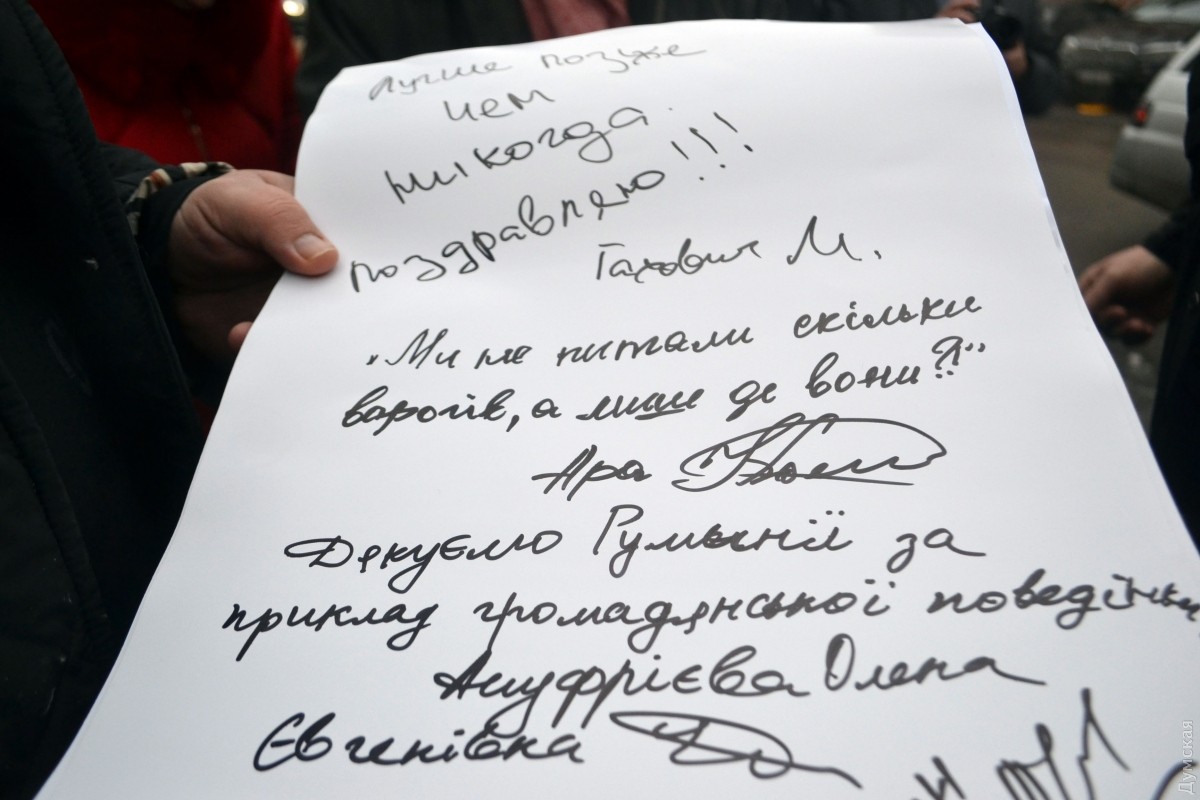 Лучше позже
чем
никогда.
поздравляю!!!
Гахович М.
"Ми не питали скільки
ворогів, а лише де вони?"
Ара
Дякуємо Румынії за
приклад громадянської поведінки
Ануфрієва Олена
Євгенівна
Думская